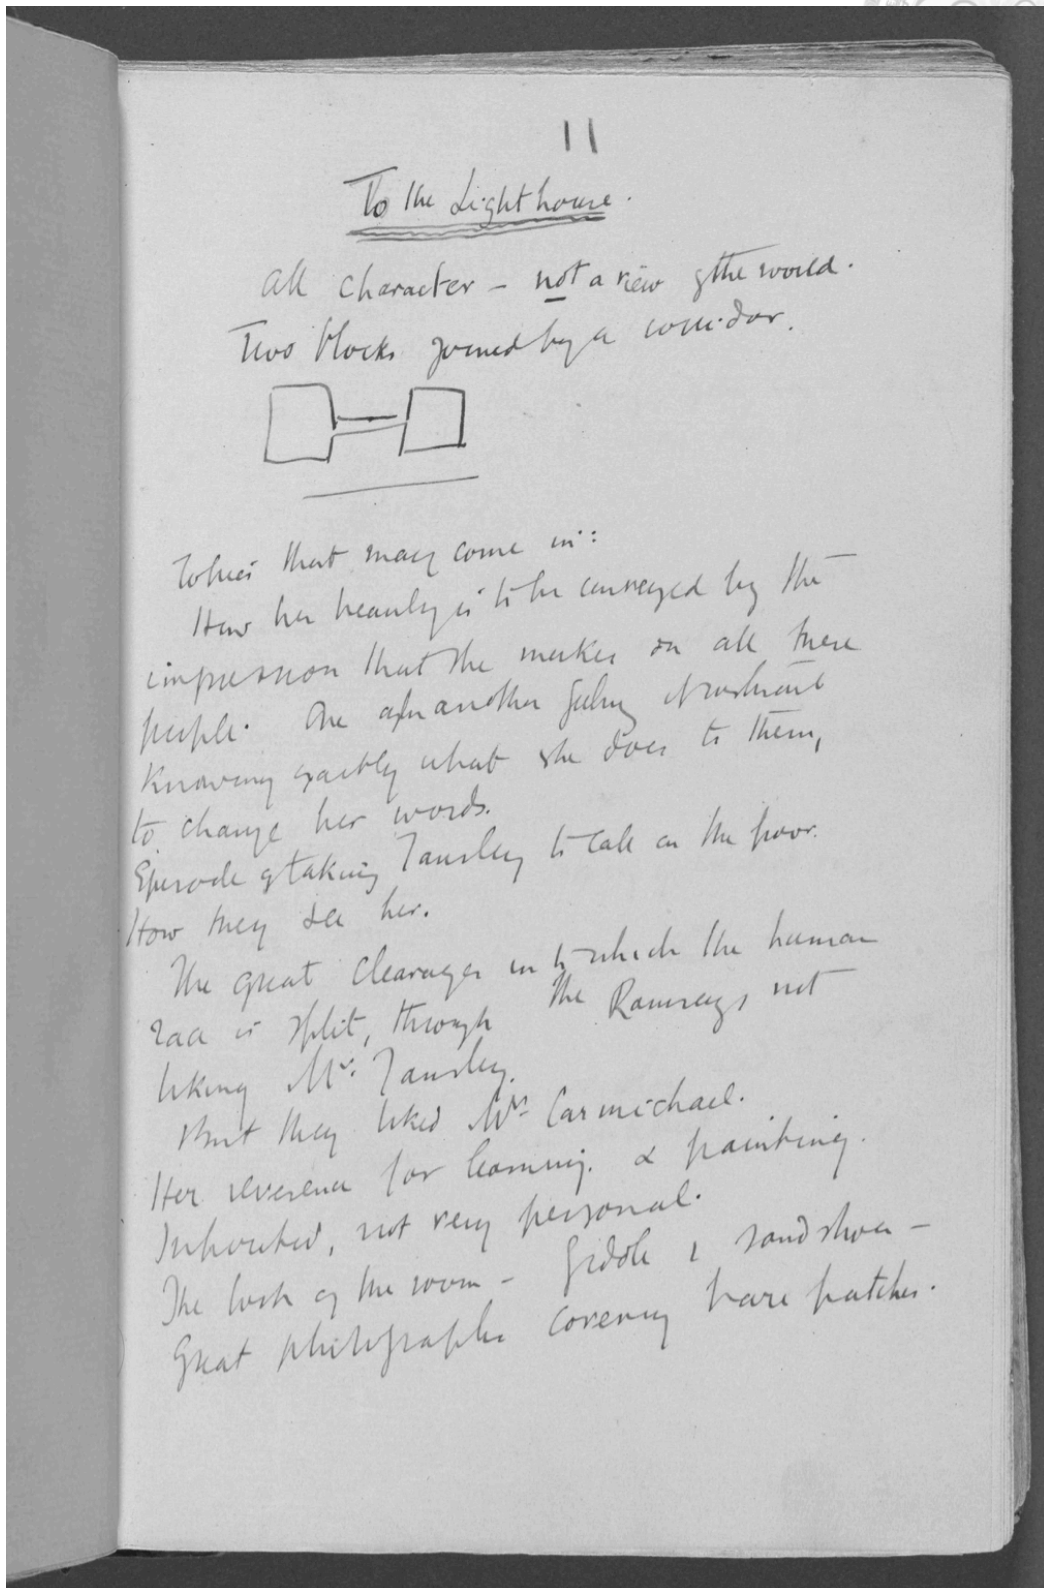 11
To the Lighthouse.
All character - not a view of the world.
Two blocks joined by a corridor.
Topics that may come in:
How her beauty is to be conveyed by the
impression that she makes on all these
people. One after another feeling it without
knowing exactly what she does to them,
to change her words.
Episode of taking Tansley to call on the poor.
How they see her.
The great cleavages into which the human
race is split, through the Ramsays not
liking Mr. Tansley.
But they liked Mr Carmichael.
Her reverence for learning & painting.
Inhibited, not very personal.
The look of the room - & sandshoes -
Great photographs covering bare patches.